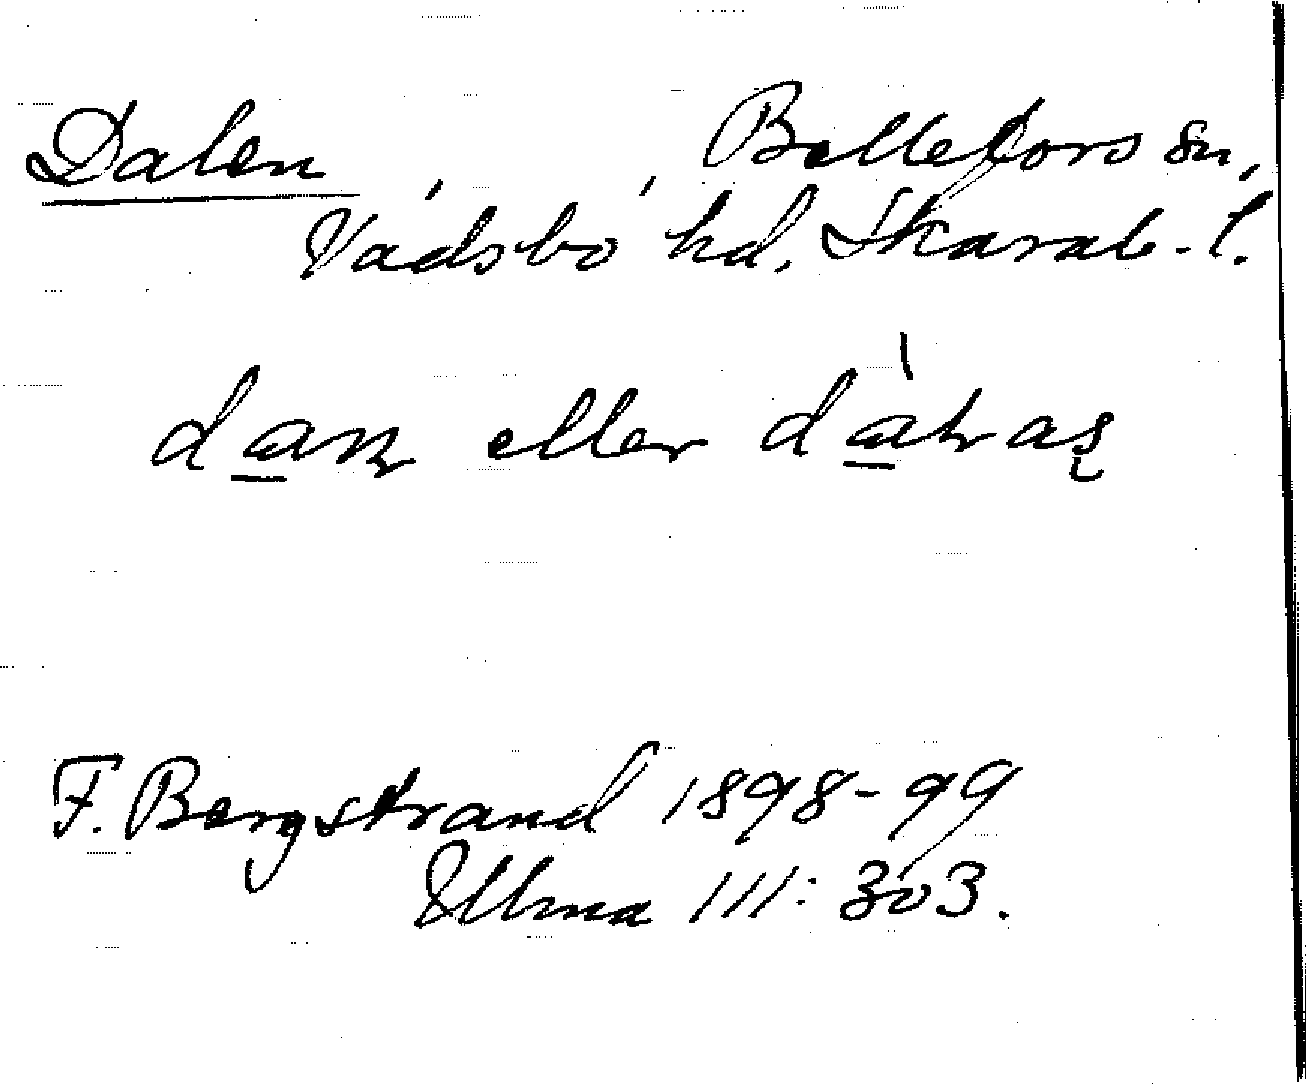 Dalen , , Bellefors sn,
Vadsbo hd. Skarab. l.
eller
F. Bergstrand 1898-99
Ulma 111:303.